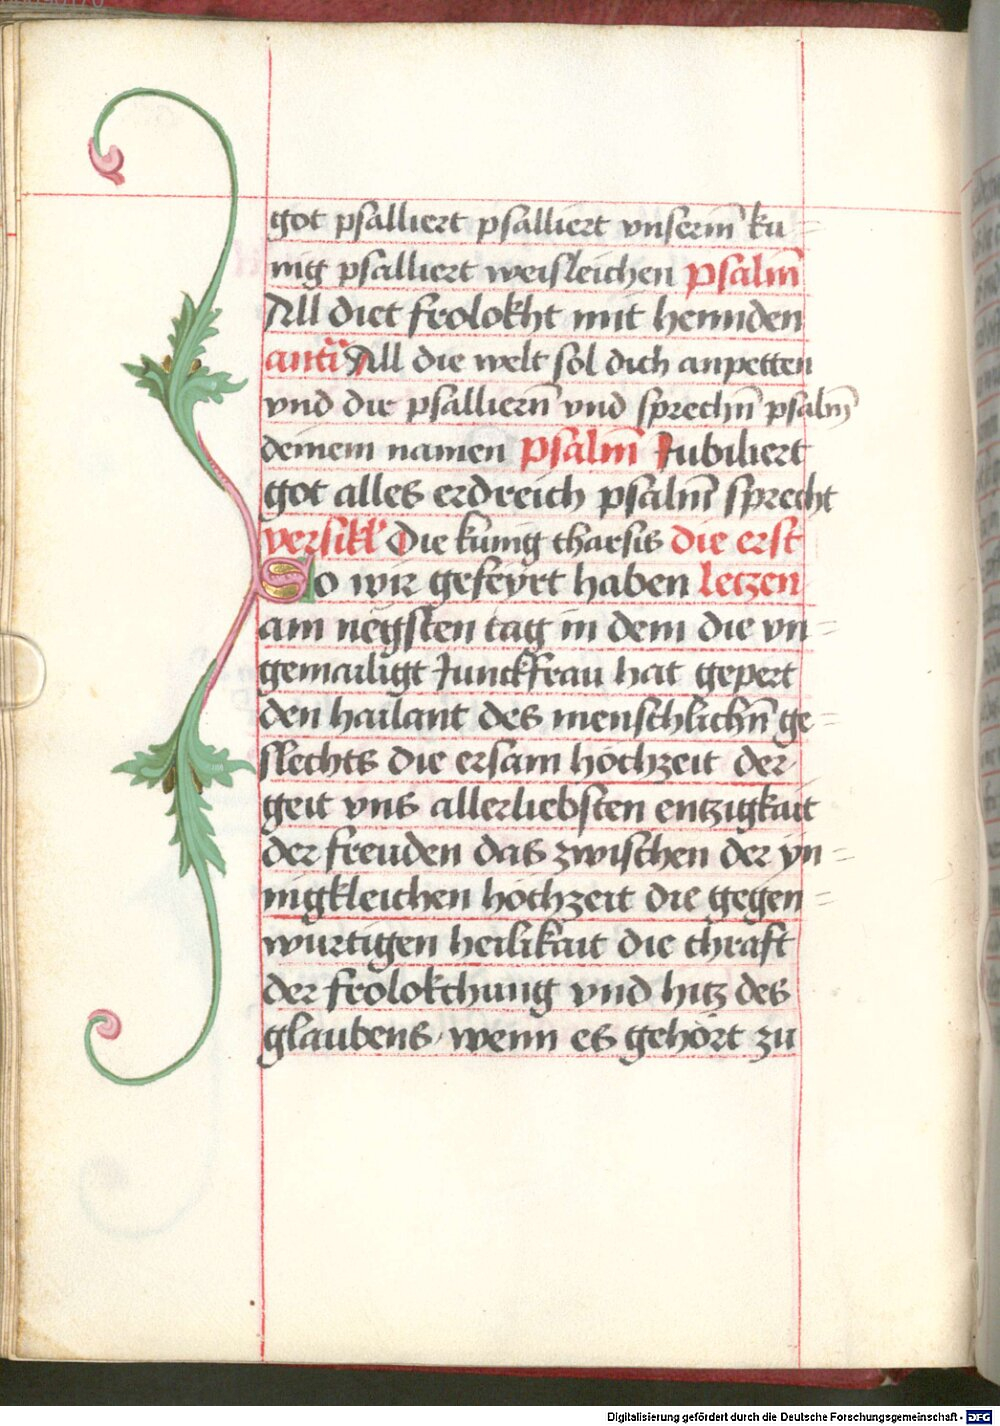 got psalliert psalliert vnserm̄ ku=
nig psalliert weisleichen psalm̄
All diet frolokht mit hennden
antā All die welt sol dich anpetten
vnd dir psalliern̄ vnd sprechn̄ psalm̄
deinem namen psalm̄ Jubiliert
got alles erdreich psalm̄ sprecht
versikl' Die kunig tharsis die erst
So wir gefeyrt haben letzen
am negsten tag in dem die vn=
gemailigt Junckfrau hat gepert
den hailant des menschlichn̄ ge=
slechts die ersam hochzeit der
geit vns allerliebsten entzigkait
der freuden das zwischen der yn=
nigkleichen hochzeit die gegen=
wurtigen heilikait die chraft
der frolokchung vnd hitz des
glaubens wenn es gehort zu
Digitalisierung gefördert durch die Deutsche Forschungsgemeinschaft - DFG